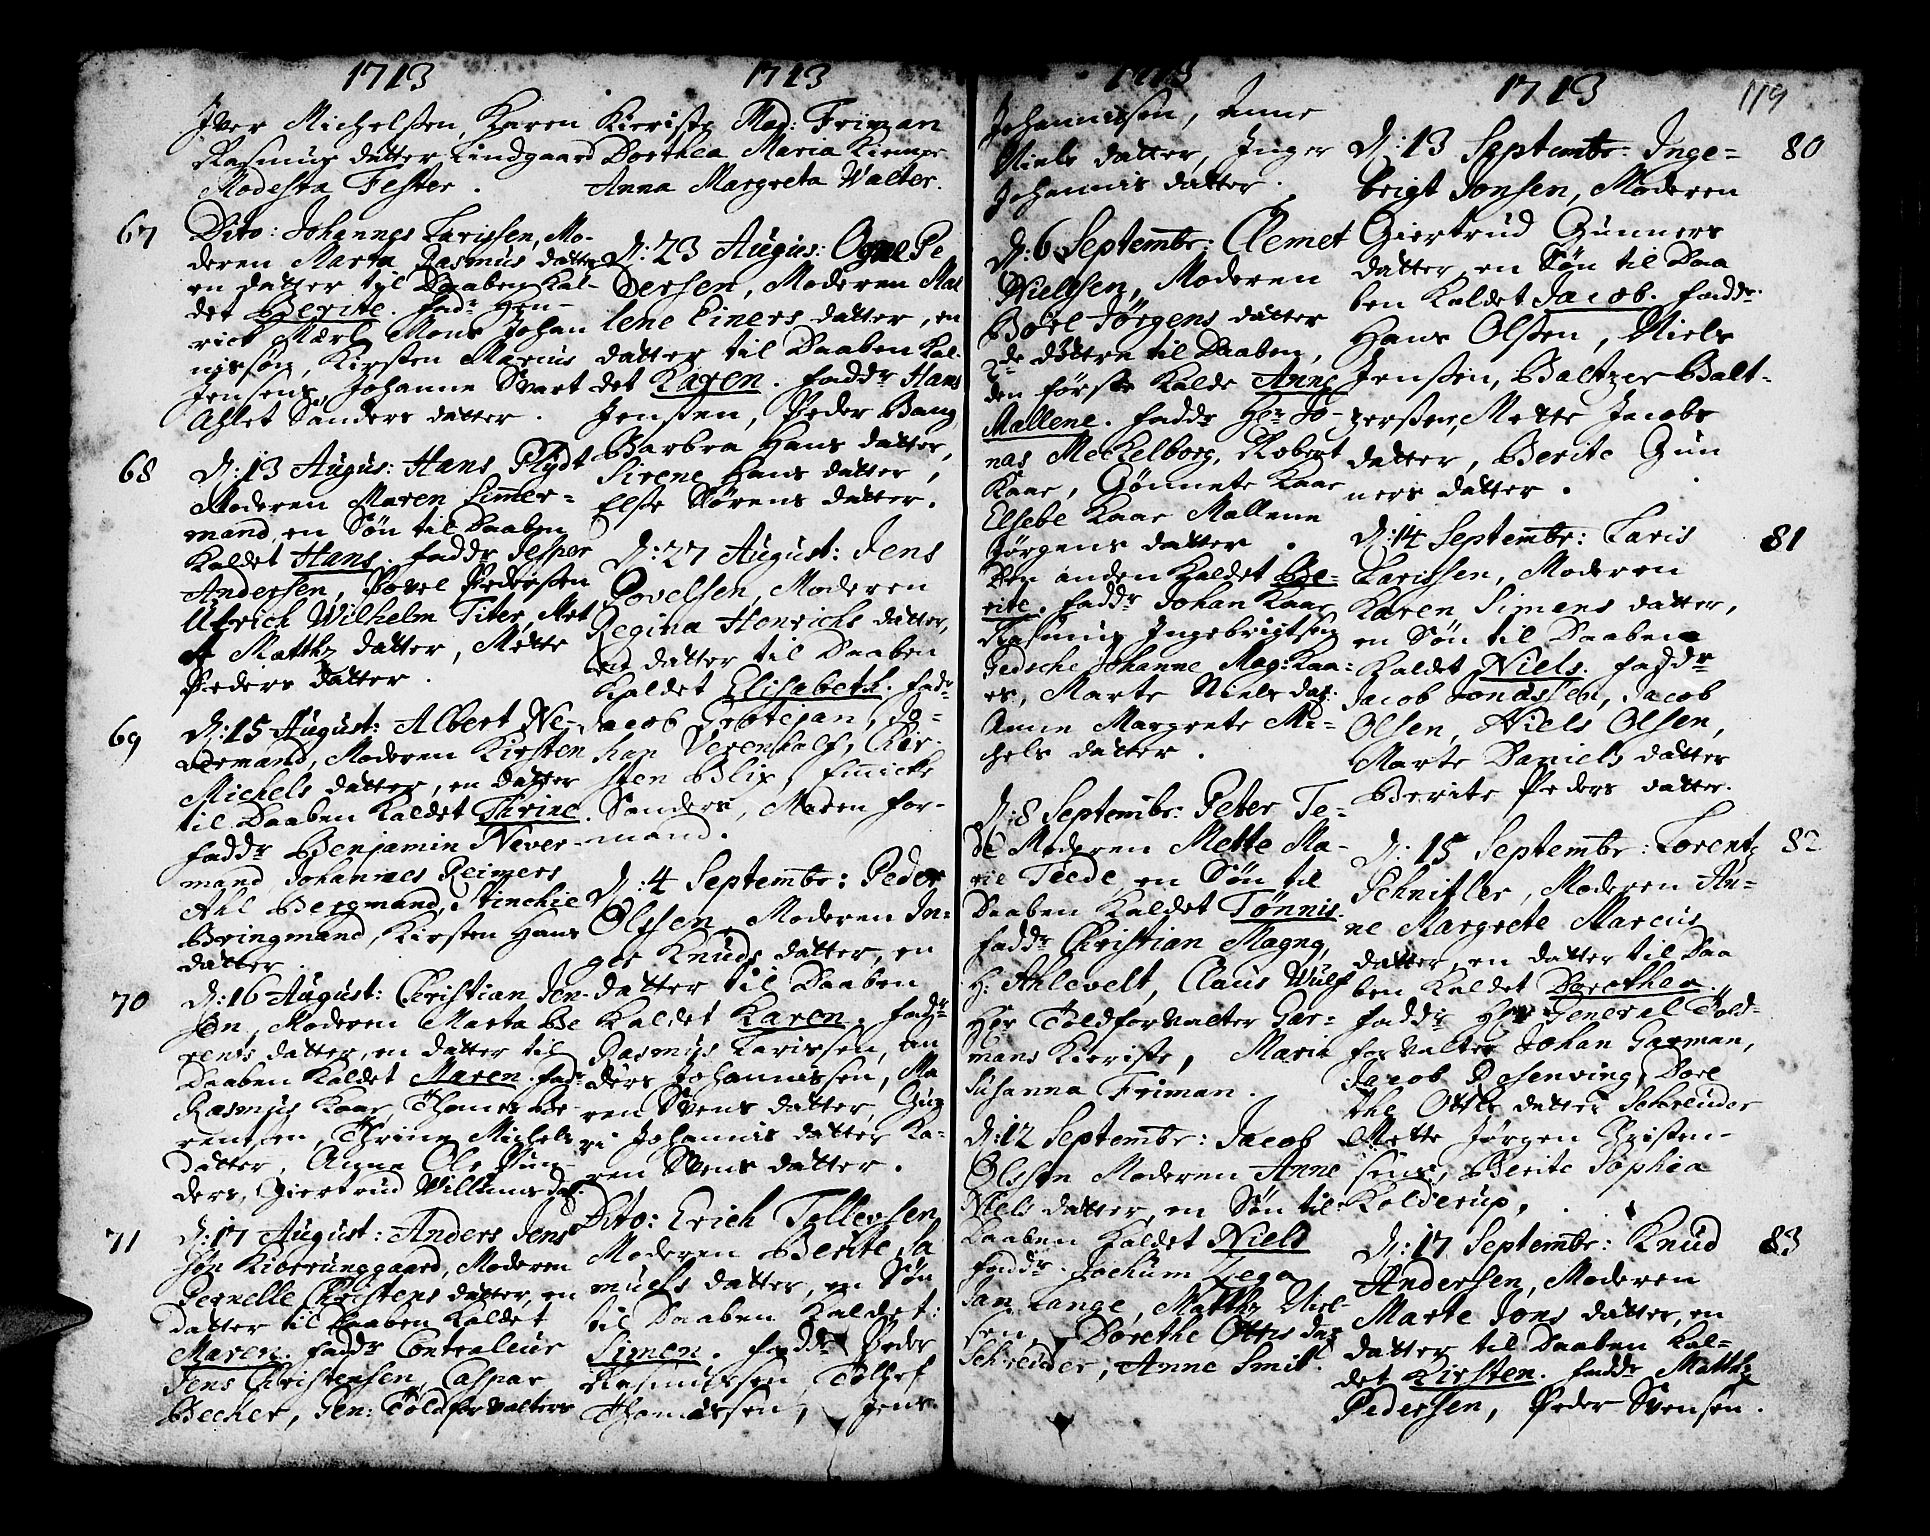 1713
Iver Michelsen, Karen
Rasmus datter Lindgaard
Modesta Fester.
67
Dito: Johannes Larissen, Mo-
deren Marta Rasmus datter
en datter til Daaben Kal-
det Berite. fadr Hen-
rick Mons Johan
nissøn, Kirsten Marcus
Jensens, Johanne Svart
Ahlet Sanders datter.
68
D: 13 Augus: Hans Plÿdt
Moderen Maren Simmer-
mand, en Søn til Daaben
Kaldet Hans. faddr Jesper
Andersen, Povel Pedersen
Ulrich Wilhelm Titer, Met
te Matthz datter, Mette
Peders datter.
69
D: 15 August: Albert Ne-
vermand, Moderen Kirsten
Michels datter, en datter
til Daaben Kaldet Thrine.
faddr Benjamin Never-
mand, Johannes Reimers
Ahl Bergmand, Stinchie
Bringmand, Kirsten Hans
datter.
70
D: 16 August: Christian Jen-
sen, Moderen Marta Be
rents datter, en datter til
Daaben Kaldet Maren. fadr
Rasmus Kaar, Thomes Be-
rentsen, Thrine Michels
datter, Anne Ols
ders, Giertrud Willums dat.
71
D: 17 August: Anders Jens
søn Kiberunggaard, Moderen
Pernelle Christens datter, en
datter til Daaben Kaldet
Maren. faddr Contraleur
Jens Christensen, Caspar
Becher, Gen: Toldforvalters
1713
Kieriste Mad: Friman
Dorthea Maria Kiempe
Anna Margreta Valter.
D: 23 Augus: Ogne Pe
dersen, Moderen Mal
lene Einers datter, en
datter til Daaben Kal-
det Karen. faddr Hans
Jensen, Peder Bang
Barbra Hans datter,
Sirene Hans datter,
Else Sørens datter.
D: 27 August: Jens
Povelsen, Moderen
Regina Henrichs datter,
en datter til Daaben
Kaldet Elisabeth. fadr
Jacob Grotejan, Jo-
han Verenhalf, Kir-
sten Blix, Emicke
Sanders, Maren for-
mand.
D: 4 Septembr: Peder
Olsen, Moderen In-
ger Knuds datter, en
datter til Daaben
Kaldet Karen. fadr
Rasmus Larissen, An
ders Johannissen, Ma
ren Svens datter, Gun
ri Johannis datter Ka-
ren Svens datter.
Dito: Erich Tollevsen
Moderen Berite Sa
muels datter, en Søn
til Daaben Kaldet:
Simen. faddr Peder
Rasmussen, Tollef
Thomassen, Jens
1713
Johannissen, Anne
Niels datter, Inger
Johannis datter.
D: 6 Septembr: Clemet
Nielssen, Moderen
Boel Jørgens datter
2de døttre til Daaben,
den første Kalde Anne
Mallene. faddr Hr Jo-
nas Meckelborg, Robert
Kaar, Gønnete Kaar
Elsebe Kaar Mallene
Jørgens datter.
Den anden Kaldet Be-
rite. faddr Johan Kaar
Rasmus Ingebrigtsen
Gedsche Johanne Mag: Kaa-
rs, Marte Niels dat:
Anne Margrete Mi-
chels datter.
D: 8 Septembr: Peter Te-
de Moderen Mette Ma-
rie Teede en Søn til
Daaben Kaldet Tønnis.
faddr Christian Magng,
H: Ahlevelt, Claus Wulf
Her Toldforvalter Gar-
mans Kieriste, Maria
Susanna Friman.
D: 12 Septembr: Jacob
Olssen Moderen Anne
Niels datter, en Søn til
Daaben Kaldet Niels
faddr. Jochum Zega
Jan Lange, Matthz Niel-
sen, Dorethe Ottis dat
Schreuder, Anne Smit.
1713
119
80
D: 13 Septembr: Inge-
brigt Jonsen, Moderen
Giertrud Gunners
datter, en Søn til Daa
ben Kaldet Jacob. faddr.
Hans Olsen, Niels
Jensen, Baltzer Balt-
zersen, Mette Jacobs
datter, Berite Gun
ners datter.
81
D: 14 Septembr: Laris
Larissen, Moderen
Karen Simens datter,
en Søn til Daaben
Kaldet Niels. faddr
Jacob Jonassen, Jacob
Olsen, Niels Olsen,
Marte Daniels datter
Berite Peders datter.
82
D: 15 Septembr: Lorentz
Schnitler, Moderen An-
ne Margrete Marcus
datter, en datter til Daa
ben Kaldet Dorethea.
faddr Her General Told-
forvalter Johan Garman,
Jacob Rosenving, Dore
the Ottis datter Schreuder
Mette Jørgen Christen-
sens, Berite Sophia
Kolderup.
83
D: 17 Septembr: Knud
Andersen, Moderen
Marte Jons datter, en
datter til Daaben Kal-
det Kirsten. faddr Matthz
Pedersen, Peder Svensen.